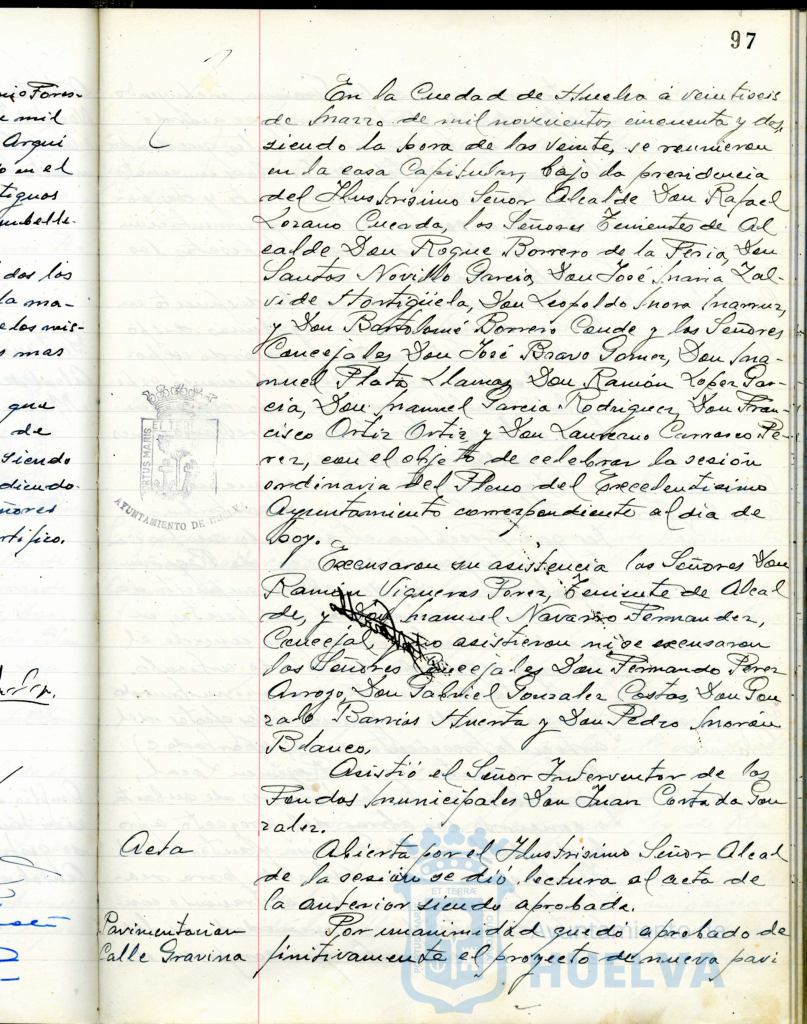 97
En la Cuedad de Huelva a veintiseis
de Marzo de mil novecientos cincuenta y dos,
siendo la hora de las veinte, se reunieron
en la casa Capitular, bajo la presidencia
del Ilustrisimo Señor Alcalde Don Rafael
Lozano Cuerda, los Señores Tenientes de Al
calde Don Roque Borrero de la Feria, Don
Santos Novillo Garcia, Don José Maria Zal-
vide Hortiguela, Don Leopoldo Mora
y Don Bartolomé Borrero Conde y los Señores
Concejales Don José Bravo Gomez, Don Ma-
nuel Plata Llamas, Don Ramón Lopez Gar-
cia, Don Manuel Garcia Rodriguez, Don Fran-
cisco Ortiz Ortiz y Don Laureano Carrasco Pe-
rez, con el objeto de celebrar la sesión
ordinaria del Pleno del Excelentisimo
Ayuntamiento correspondiente al dia de
hoy.
Excusaron su asistencia los Señores Don
Ramón Vigueras Perez, Teniente de Alcal
de, y Don Manuel Navarro Fernandez,
Concejal, no asistieron ni se excusaron
los Señores Concejales Don Fernando Perez
Arroyo, Don Gabriel Gonzalez Costas, Don Gon
zalo Barrios Huerta y Don Pedro Morón
Blanco.
Asistió el Señor Interventor de los
Fondos Municipales Don Juan Cortada Gon
zalez.
Acta
Abierta por el Ilustrisimo Señor Alcal
de la sesión se dió lectura al acta de
la anterior siendo aprobada.
Pavimentacion
Calle Gravina
Por unanimidad quedo aprobado de
finitivamente el proyecto de nueva pavi
ET TERRÆ
AYUNTAMIENTO DE HUELVA
ET TERRÆ
PORTUS MARIS
Ayuntamiento de
HUELVA
mil
Arqui
en el
de
siendo